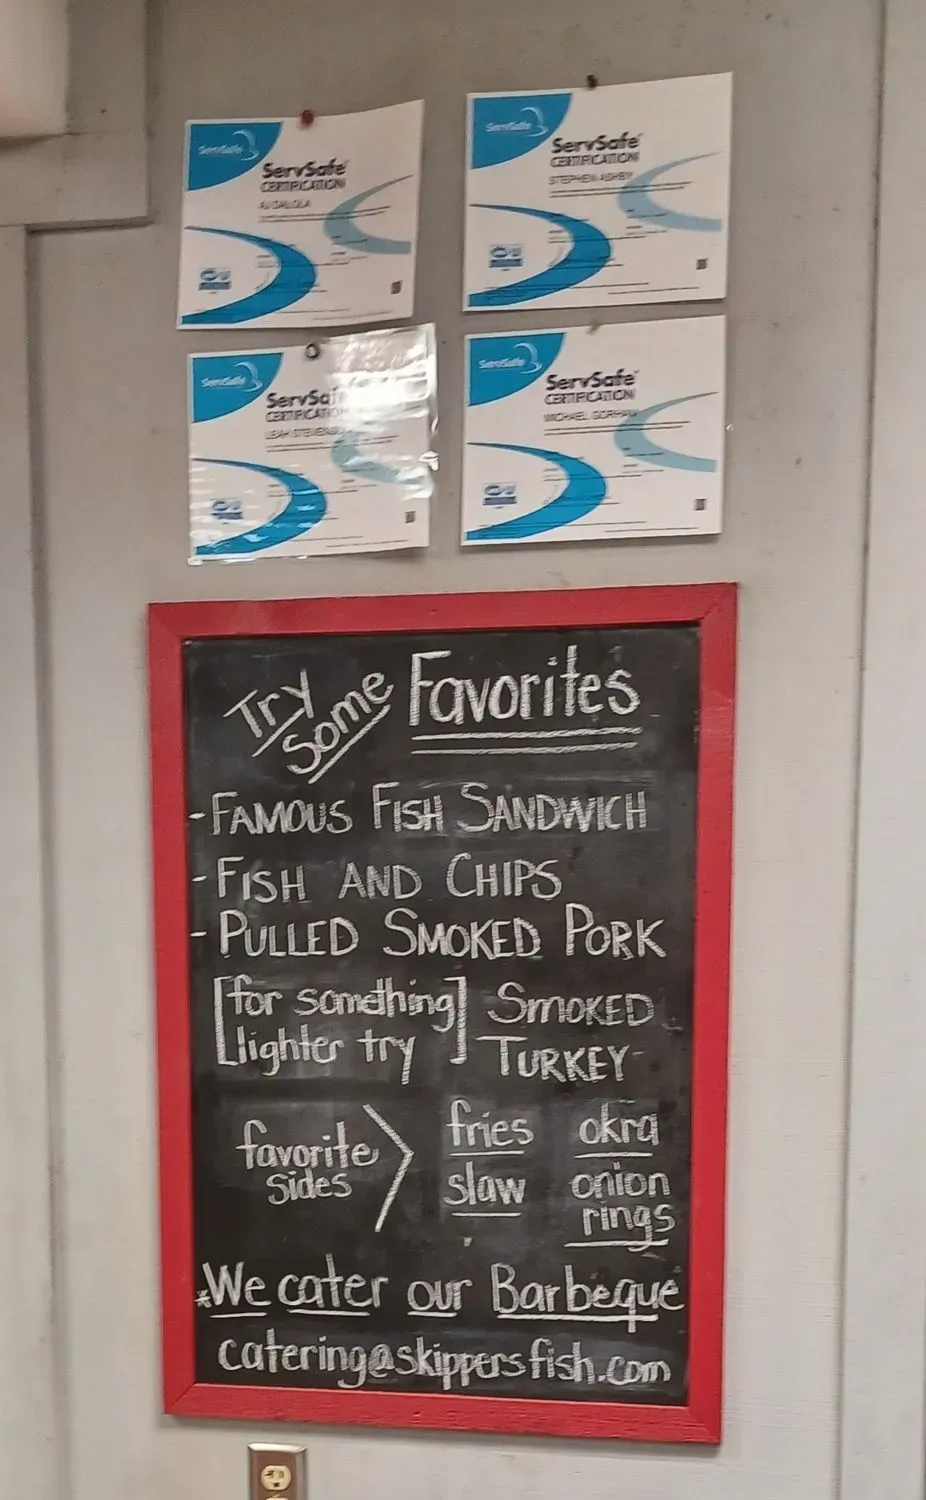 ServSafe
ServSafe®
CERTIFICATION
ServSafe
ServSafe®
CERTIFICATION
STEPHEN ASHBY
ServSafe
ServSafe
CERTIFICATION
LEAH
ServSafe
ServSafe®
CERTIFICATION
MICHAEL GORHAM
Try Some Favorites
- FAMOUS FISH SANDWICH
- FISH AND CHIPS
- PULLED SMOKED PORK
[for something lighter try] SMOKED TURKEY
favorite sides > fries okra
slaw onion rings
*We cater our Barbeque
catering@skippersfish.com